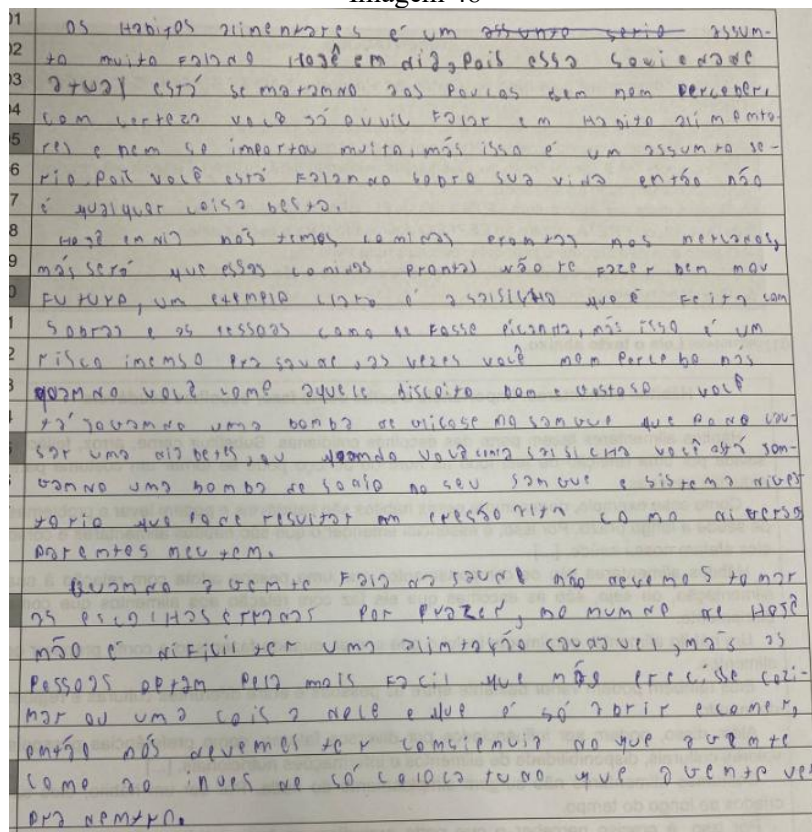 Imagem 48
01 OS Habitos alimentares é um ~~assunto serio~~ assum-
02 to muito Falado Hojê em dia, Pois essa Soviedade
03 atual está se matamdo aos Poucos sem nem Perceber,
04 com certeza você só ouviu Falar em Habito alimenta-
05 res e nem se importou muito, más isso é um assumto se-
06 rio, Pois você está Falamdo sobre sua vida então não
07 é qualquer coisa besta.
08 Hojê en dia nós temos comidas promtas nos mercados,
09 más será que essas comidas Prontas vão te Fazer bem mou
0 Futuro, um exemplo claro é a salsicha que é Feita com
1 Sobras e as pessoas come se Fosse picanha, más isso é um
2 risco imemso Pra saude, as vezes você mem Percebe mas
3 quamdo você come aquele biscoito bom e gostoso você
tá jogamdo uma bomba de glicose no sangue que Pode cau-
sar uma diabetes, ou quamdo você come salsicha você está jom-
gamdo uma bomba de sodio no seu sangue e sistema diges-
torio que Pode resultar em pressão alta como diverso
Paremtes meu tem.
Quamdo a gemte Fala da saude não devemos tomar
as escolhas erradas Por Prazer, no mumdo de Hojê
mão é dificil ter uma alimtação saudavel, mais as
Pessoas optam Pelo mais Facil que mão Precisse cozi-
nhar ou uma coisa dele e que é só abrir e comer,
emtão nós devemes ter comsiemcia do que a gemte
come ao inves de só coloca tudo que a gemte ver
Pra demtro.